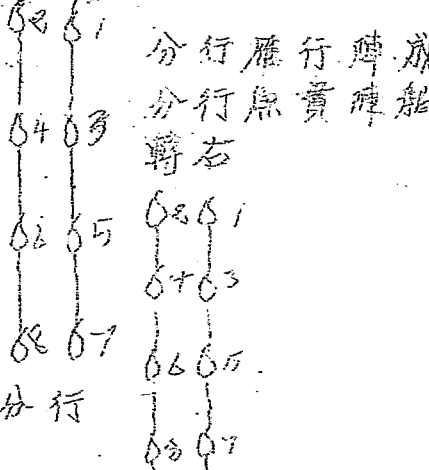 2 1
4 3
6 5
8 7
分行
分行雁行陣成
分行魚貫陣船
轉右
2 1
4 3
6 5
8 7